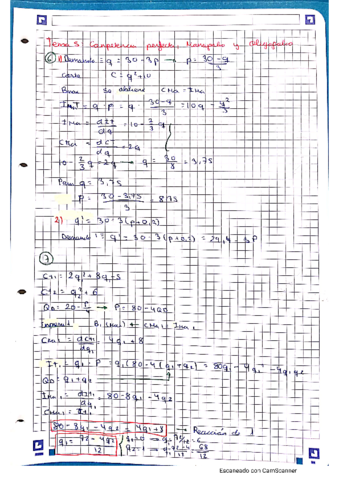 Tema 5 Competencia perfecta, Monopolio y oligopolio
6) 1) Demanda = q = 30 - 3p → p = 30-q/3
Coste C = q² + 10
So CMa = IMa
IT = q · P = q · 30-q/3 = 10q - q²/3
IMa = dIT/dq = 10 - 2/3 q
CMa = dC/dq = 2q
10 - 2/3 q = 2q → q = 30/8 = 3,75
Para q = 3,75
P = 30-3,75/3 = 8,75
2) q' = 30 - 3(p+0,2)
Demanda 1 = q' = 30 - 3(p+0,2) = 29,4 - 3P
7
CT1 = 2q1² + 8q1 - 5
CT2 = q2² + 6
QD = 20 - P/4 → P = 80 - 4QD
CMa1 = dCT1/dq1 = 4q1 + 8
IT1 = q1 · P = q1(80 - 4(q1+q2)) = 80q1 - 4q1² - 4q1q2
QD = q1 + q2
IMa1 = dIT1/dq1 = 80 - 8q1 - 4q2
80 - 8q1 - 4q2 = 4q1 + 8 → Reacción de 1
q1 = 72 - 4q2/12
q2=0 → q1 = 72/12 = 6
q2=1 → q1 = 72-4/12 = 68/12
Escaneado con CamScanner